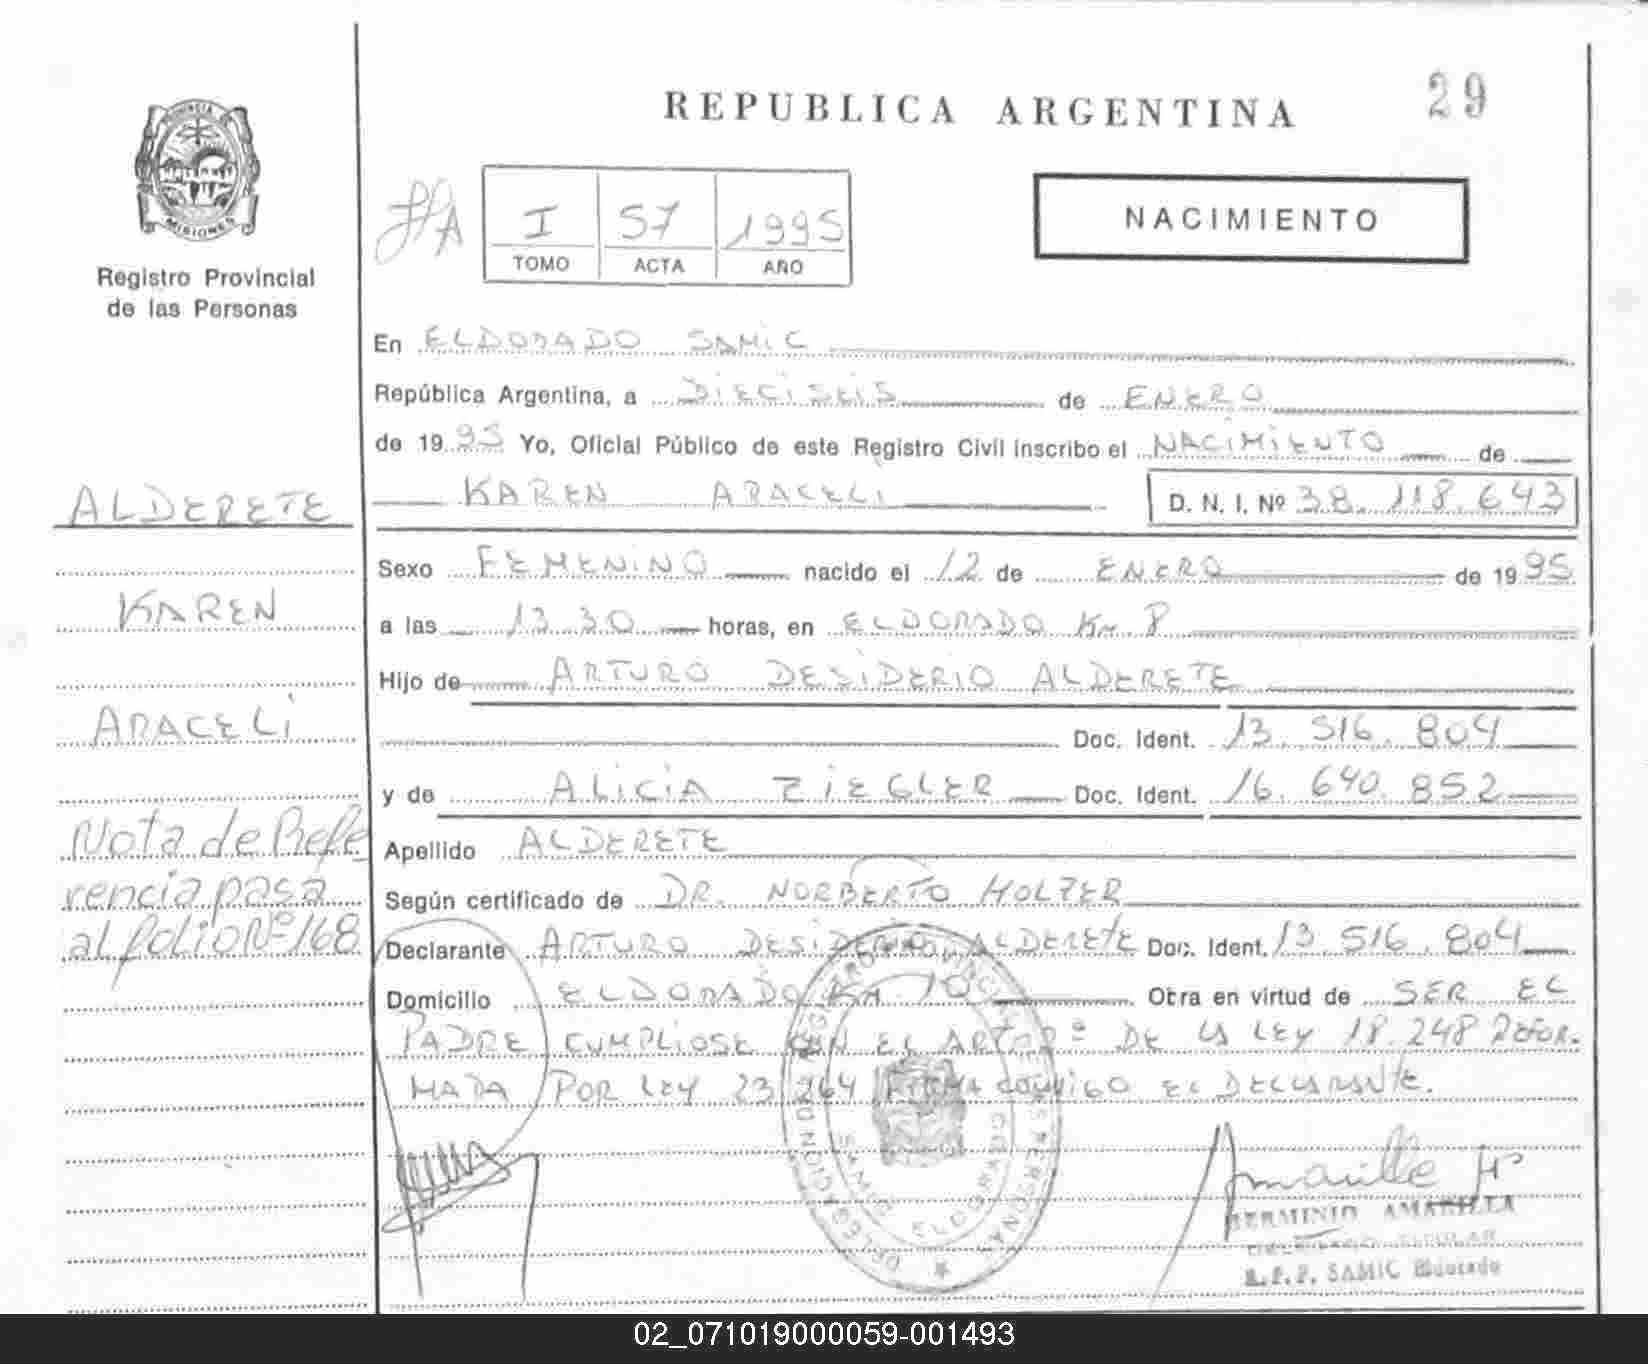 29
REPUBLICA ARGENTINA
PROVINCIA
MISIONES
Registro Provincial
de las Personas
I 57 1995
TOMO ACTA AÑO
NACIMIENTO
En ELDORADO SAMiC
República Argentina, a DiECiSEiS de ENERO
de 1995 Yo, Oficial Público de este Registro Civil inscribo el NACiMiENTO de
KAREN ARACELi D. N. I. Nº 38.118.643
ALDERETE
KAREN
ARACELi
Nota de Refe
rencia pasa
al folio Nº 168
Sexo FEMENiNO nacido el 12 de ENERO de 1995
a las 13.30 horas, en ELDORADO Km 8
Hijo de ARTURO DESiDERIO ALDERETE
Doc. Ident. 13.516.804
y de ALiCiA ZiEGLER Doc. Ident. 16.640.852
Apellido ALDERETE
Según certificado de DR. NORBERTO HOLZER
Declarante ARTURO DESiDERIO ALDERETE Doc. Ident. 13.516.804
Domicilio ELDORADO KM 10 Obra en virtud de SER EL
PADRE CUMPLIOSE CON EL ART DE LA LEY 18.248 REFOR-
MADA POR LEY 23.264 FIRMA CONMIGO EL DECLARANTE.
Amarilla H
HERMINIO AMARILLA
DELEGADO TITULAR
R.P.P. SAMIC Eldorado
02_071019000059-001493